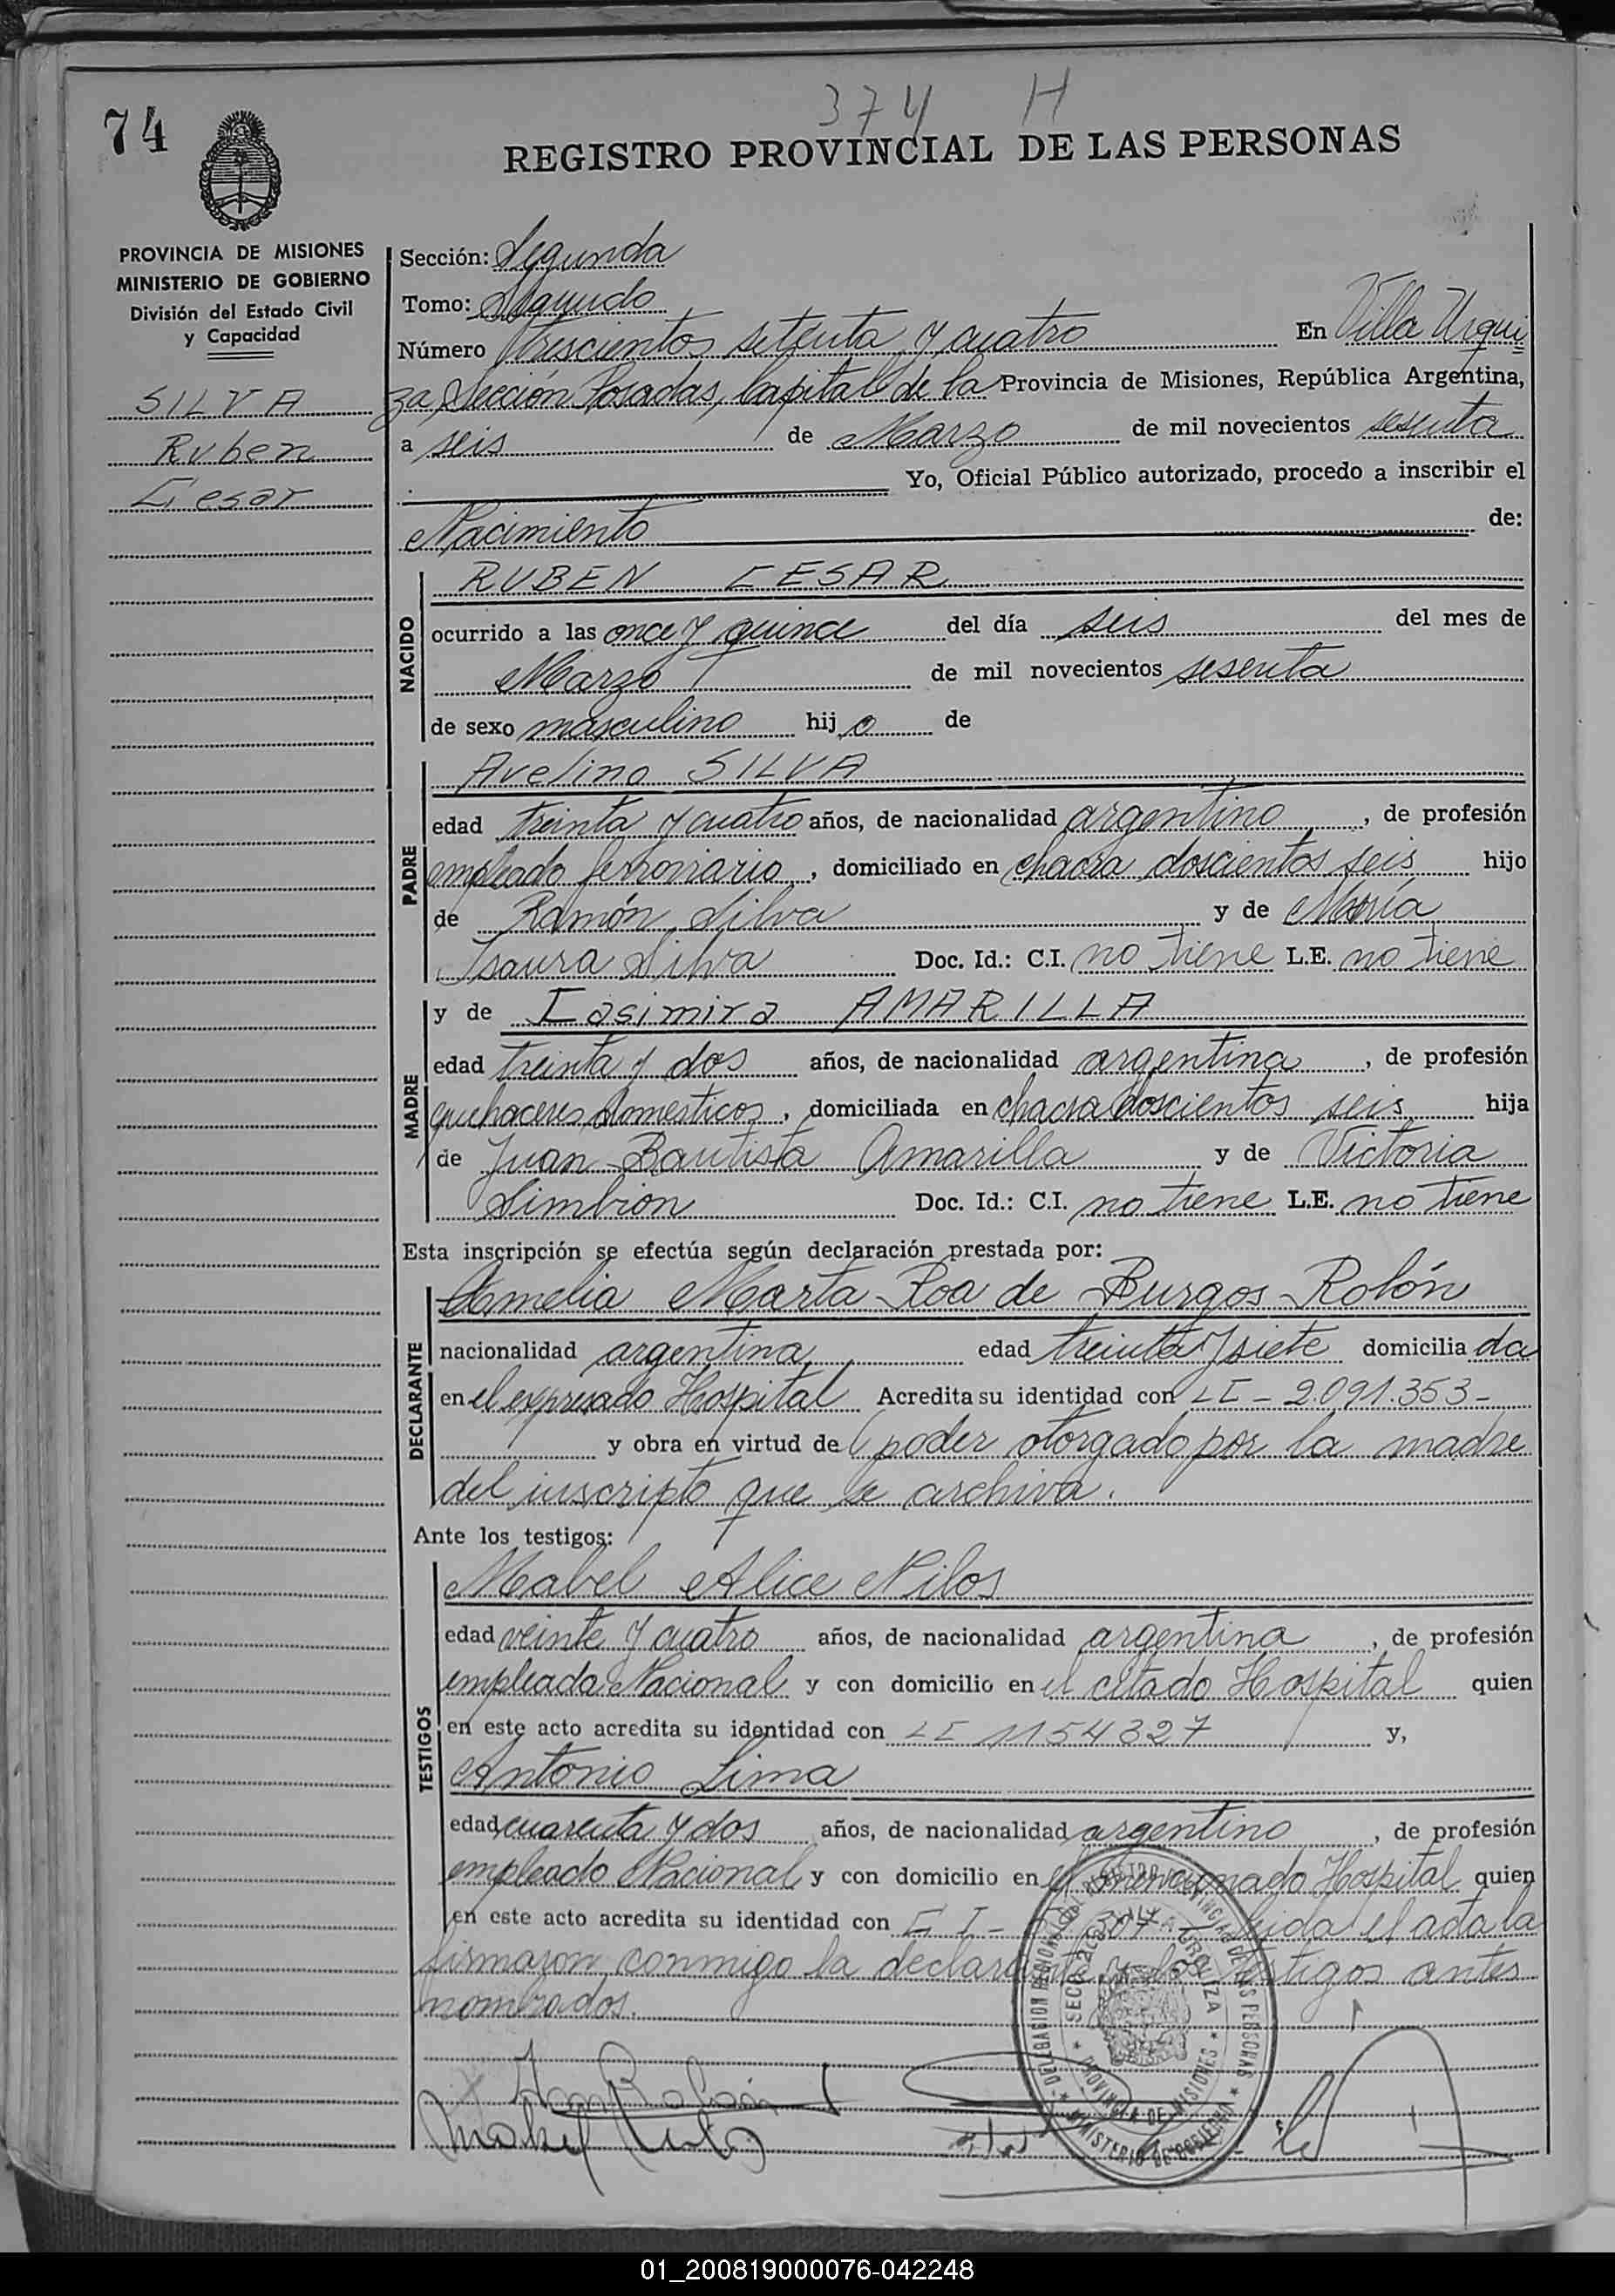 374 H
74
REGISTRO PROVINCIAL DE LAS PERSONAS
PROVINCIA DE MISIONES
MINISTERIO DE GOBIERNO
División del Estado Civil
y Capacidad
SILVA
Ruben
Cesar
Sección: Segunda
Tomo: Segundo
Número Trescientos setenta y cuatro En Villa Urqui
za Sección Posadas, Capital de la Provincia de Misiones, República Argentina,
a seis de Marzo de mil novecientos sesenta
Yo, Oficial Público autorizado, procedo a inscribir el
Nacimiento de:
NACIDO
RUBEN CESAR
ocurrido a las once y quince del día seis del mes de
Marzo de mil novecientos sesenta
de sexo masculino hijo de
PADRE
Avelino SILVA
edad treinta y cuatro años, de nacionalidad argentino, de profesión
empleado ferroviario, domiciliado en chacra doscientos seis hijo
de Ramón Silva y de María
Isaura Silva Doc. Id.: C.I. no tiene L.E. no tiene
MADRE
y de Casimira AMARILLA
edad treinta y dos años, de nacionalidad argentina, de profesión
quehaceres domesticos, domiciliada en chacra doscientos seis hija
de Juan Bautista Amarilla y de Victoria
Simbron Doc. Id.: C.I. no tiene L.E. no tiene
Esta inscripción se efectúa según declaración prestada por:
DECLARANTE
Amelia Marta Roa de Burgos Rolón
nacionalidad argentina edad treinta y siete domiciliada
en el expresado Hospital Acredita su identidad con LC - 2.091.353 -
y obra en virtud de poder otorgado por la madre
del inscripto que se archiva.
Ante los testigos:
TESTIGOS
Mabel Alice Nilos
edad veinte y cuatro años, de nacionalidad argentina, de profesión
empleada Nacional y con domicilio en el citado Hospital quien
en este acto acredita su identidad con LC 1154327 y,
Antonio Lima
edad cuarenta y dos años, de nacionalidad argentino, de profesión
empleado Nacional y con domicilio en el mencionado Hospital quien
en este acto acredita su identidad con CI - leida el acta la
firmaron conmigo la declarante y los testigos antes
nombrados.
PROVINCIA DE MISIONES
MINISTERIO DE GOBIERNO
01_200819000076-042248